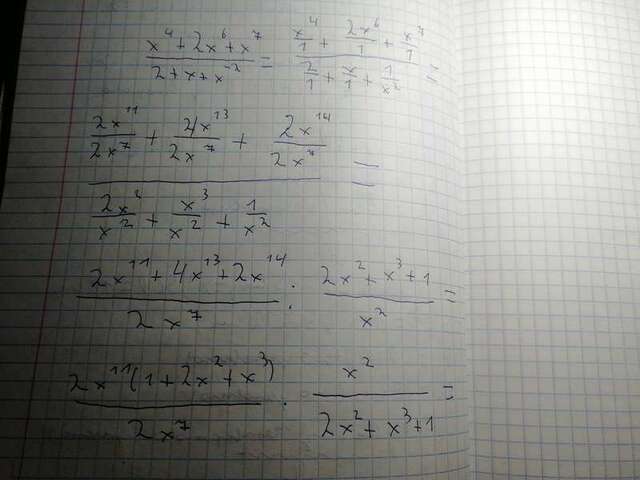 (x⁴+2x⁶+x⁷)/(2+x+x⁻²) = (x⁴/1 + 2x⁶/1 + x⁷/1)/(2/1 + x/1 + 1/x²) =
(2x¹¹/2x⁷ + 4x¹³/2x⁷ + 2x¹⁴/2x⁷)/(2x²/x² + x³/x² + 1/x²) =
(2x¹¹+4x¹³+2x¹⁴)/(2x⁷) : (2x²+x³+1)/(x²) =
(2x¹¹(1+2x²+x³))/(2x⁷) · (x²)/(2x²+x³+1) =